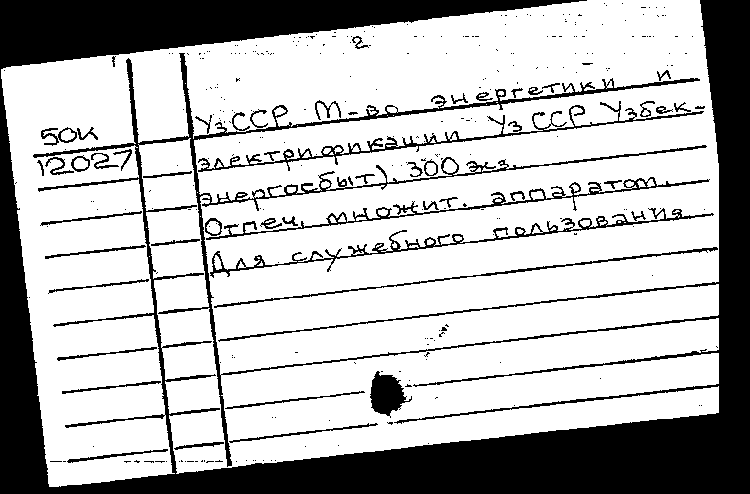 2
УзССР. М-во энергетики и
50к
электрификации УзССР. Узбек-
12027
энергосбыт). 300 экз.
Отпеч. множит. аппаратом.
Для служебного пользования